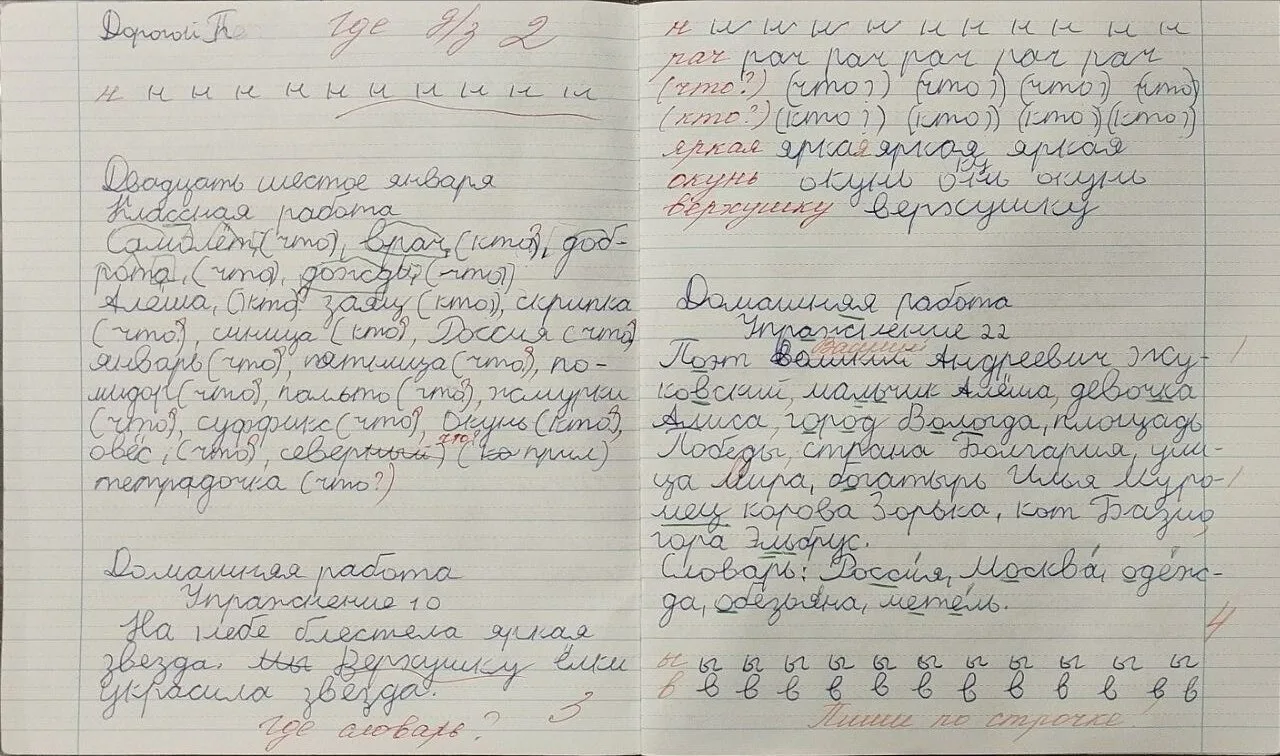 Дорогой По Где д/з 2
н н н н н н н н н н н
Двадцать шестое января
Классная работа
Самолёт, (что?), врач, (кто?), доб-
рота, (что?), дождь, (что?)
Алёша, (кто?) заяц (кто?), скрипка
(что?), синица (кто?), Россия (что?)
январь (что?), пятница (что?), по-
мидор (что?), пальто (что?), жмурки
(что?), суффикс (что?), Окунь (кто?),
овёс, (что?), северный (что? прил)
тетрадочка (что?)
Домашняя работа
Упражнение 10
На небе блестела яркая
звезда. Мы Верхушку ёлки
украсила звезда.
Где словарь? 3
н н н н н н н н н н н
рач рач рач рач рач рач
(что?) (что?) (что?) (что?) (что)
(кто?) (кто?) (кто?) (кто?) (кто?)
яркая яркая яркая яркая
окунь окунь окунь окунь
верхушку верхушку
Домашняя работа
Упражнение 22
Поэт Василий Андреевич Жу-
ковский, мальчик Алёша, девочка
Алиса, город Вологда, площадь
Победы, страна Болгария, ули-
ца Мира, богатырь Илья Муро-
мец корова Зорька, кот Базио,
гора Эльбрус.
Словарь: Россия, Москва, одёж-
да, обезьяна, метель.
4
ы ы ы ы ы ы ы ы ы ы ы ы
в в в в в в в в в в в в в
Пиши по строчке